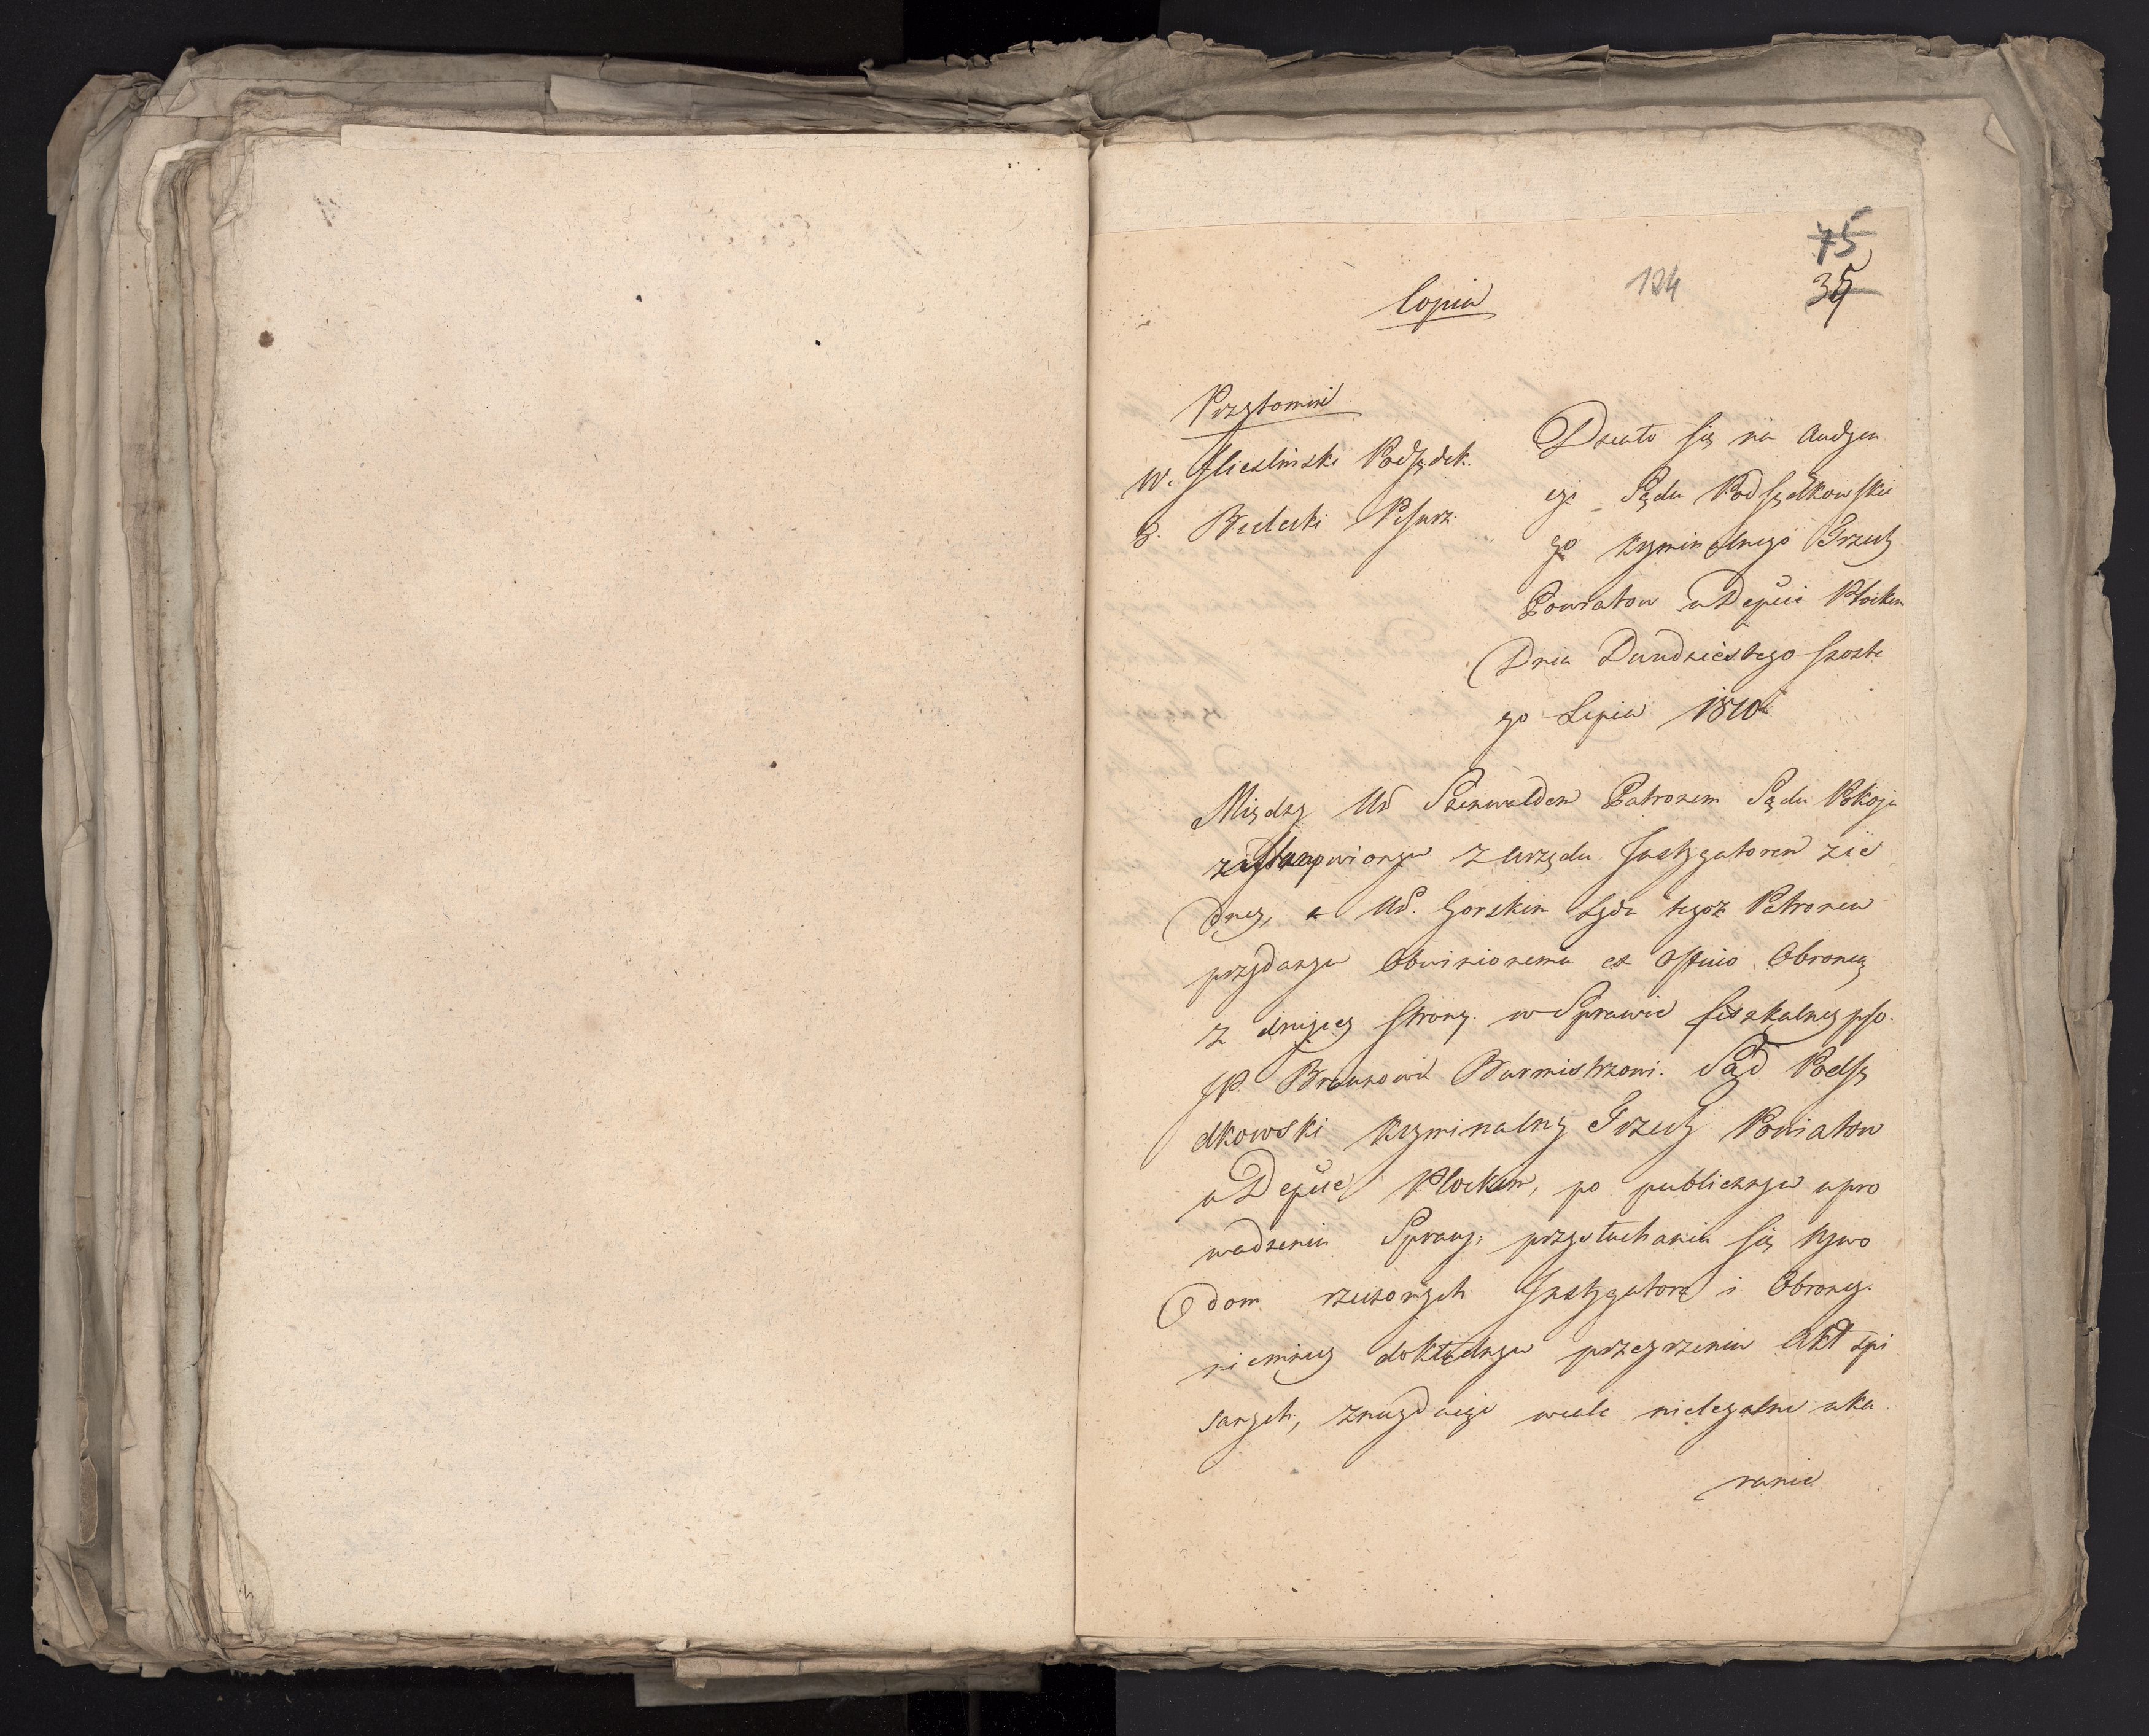 75
124
35
Copia
Przytomni
W. Jliesliński Podsędek.
B. Bielicki Pisarz.
Działo się na Audyen
cyi Sądu Podsędkowskie
go kryminalnego Trzech
Powiatow w Depcie Płockim
Dnia Dwudziestego szoste
go Lipca 1810
Między Ur. Szenwaldem Patronem Sądu Pokoju
zastanowionym z Urzędu Instygatorem z ie
dney, a Ur. Gorskim Sądu tegoż Patronem
przydanym Obwinionemu ex Officio Obroncą
z drugiey strony. w Sprawie fiskalney pso.
JP. Braunowi Burmistrzowi. Sąd Podsę
dkowski kryminalny Trzech Powiatow
w Depcie Płockim, po publicznym wpro
wadzeniu Sprawy, przysłuchaniu się wywo
dom rzeczonych Instygatora i Obroncy.
niemniey dokładnym przeyrzeniu Akt spi
sanych, znayduiąc wcale nielegalne uka
ranie